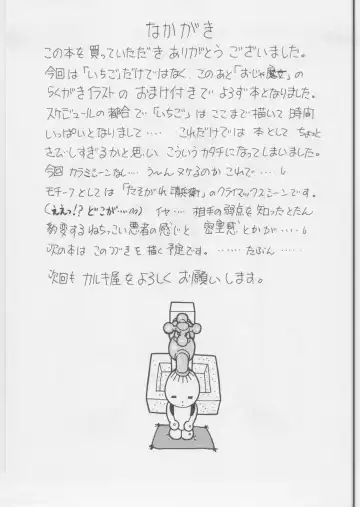 なかがき
この本を買っていただき ありがとう ございました。
今回は「いちご」だけではなく、このあと「おじゃ魔女」の
らくがきイラストの おまけ付きで よろず本となりました。
スケジュールの都合で「いちご」は ここまで描いて 時間
いっぱいと なりまして‥‥ これだけでは 本として ちょっと
さびしすぎるかと思い こういうカタチになってしまいました。
今回 カラミシーンなし‥‥ うーん ヌケるのか これで‥‥。
モチーフとしては「たそがれ清兵衛」のクライマックスシーンです。
(ええっ!? どこが‥‥) イヤ‥‥ 相手の弱点を知ったとたん
豹変するねちっこい悪者の感じと 密室感とかが‥‥‥。
次の本は このつづきを 描く予定です。 ‥‥‥ たぶん‥‥‥
次回も カルキ屋を よろしく お願いします。